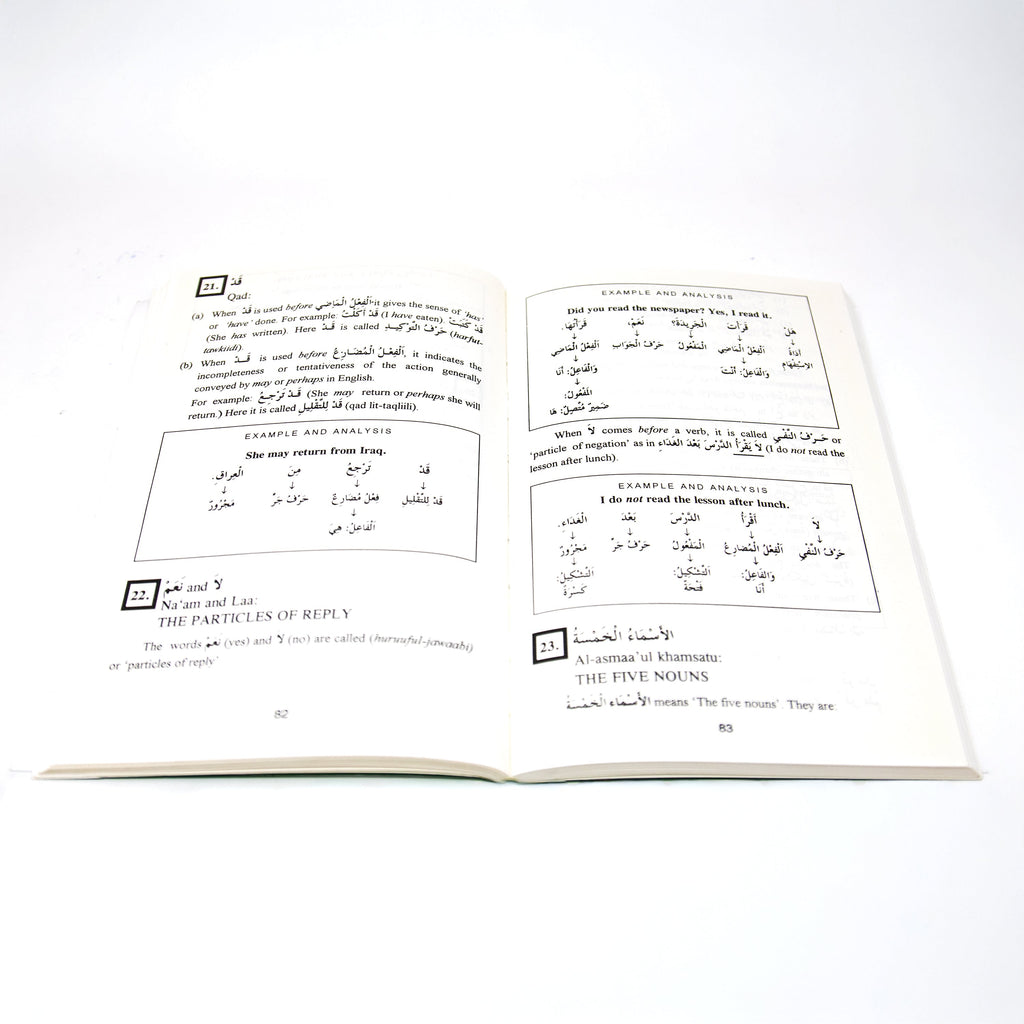 21. قَدْ
Qad:
(a) When قَدْ is used before اَلْفِعْلُ الْمَاضِي it gives the sense of 'has'
or 'have' done. For example: قَدْ أَكَلْتُ (I have eaten). قَدْ كَتَبَتْ
(She has written). Here قَدْ is called حَرْفُ التَّوْكِيدِ (harfut-
tawkiidi).
(b) When قَدْ is used before اَلْفِعْلُ الْمُضَارِعُ, it indicates the
incompleteness or tentativeness of the action generally
conveyed by may or perhaps in English.
For example: قَدْ تَرْجِعُ (She may return or perhaps she will
return.) Here it is called قَدْ لِلتَّقْلِيلِ (qad lit-taqliili).
EXAMPLE AND ANALYSIS
She may return from Iraq.
قَدْ تَرْجِعُ مِنَ الْعِرَاقِ.
↓ ↓ ↓ ↓
قَدْ لِلتَّقْلِيلِ فِعْلٌ مُضَارِعٌ حَرْفُ جَرٍّ مَجْرُورٌ
↓
اَلْفَاعِلُ: هِيَ
22. نَعَمْ and لَا
Na'am and Laa:
THE PARTICLES OF REPLY
The words نَعَمْ (yes) and لَا (no) are called (huruuful-jawaabi)
or 'particles of reply'
82
EXAMPLE AND ANALYSIS
Did you read the newspaper? Yes, I read it.
هَلْ قَرَأْتَ الْجَرِيدَةَ؟ نَعَمْ، قَرَأْتُهَا.
↓ ↓ ↓ ↓ ↓
أَدَاةُ الِاسْتِفْهَامِ اَلْفِعْلُ الْمَاضِي اَلْمَفْعُولُ حَرْفُ الْجَوَابِ اَلْفِعْلُ الْمَاضِي
↓ ↓
وَالْفَاعِلُ: أَنْتَ وَالْفَاعِلُ: أَنَا
↓
اَلْمَفْعُولُ:
ضَمِيرٌ مُتَّصِلٌ: هَا
When لَا comes before a verb, it is called حَرْفُ النَّفْيِ or
'particle of negation' as in لَا يَقْرَأُ الدَّرْسَ بَعْدَ الْغَدَاءِ (I do not read the
lesson after lunch).
EXAMPLE AND ANALYSIS
I do not read the lesson after lunch.
لَا أَقْرَأُ الدَّرْسَ بَعْدَ الْغَدَاءِ.
↓ ↓ ↓ ↓ ↓
حَرْفُ النَّفْيِ اَلْفِعْلُ الْمُضَارِعُ اَلْمَفْعُولُ حَرْفُ جَرٍّ مَجْرُورٌ
↓ ↓ ↓
وَالْفَاعِلُ: اَلتَّشْكِيلُ: اَلتَّشْكِيلُ:
أَنَا فَتْحَةٌ كَسْرَةٌ
23. الأَسْمَاءُ الْخَمْسَةُ
Al-asmaa'ul khamsatu:
THE FIVE NOUNS
الأَسْمَاءُ الْخَمْسَةُ means 'The five nouns'. They are
83